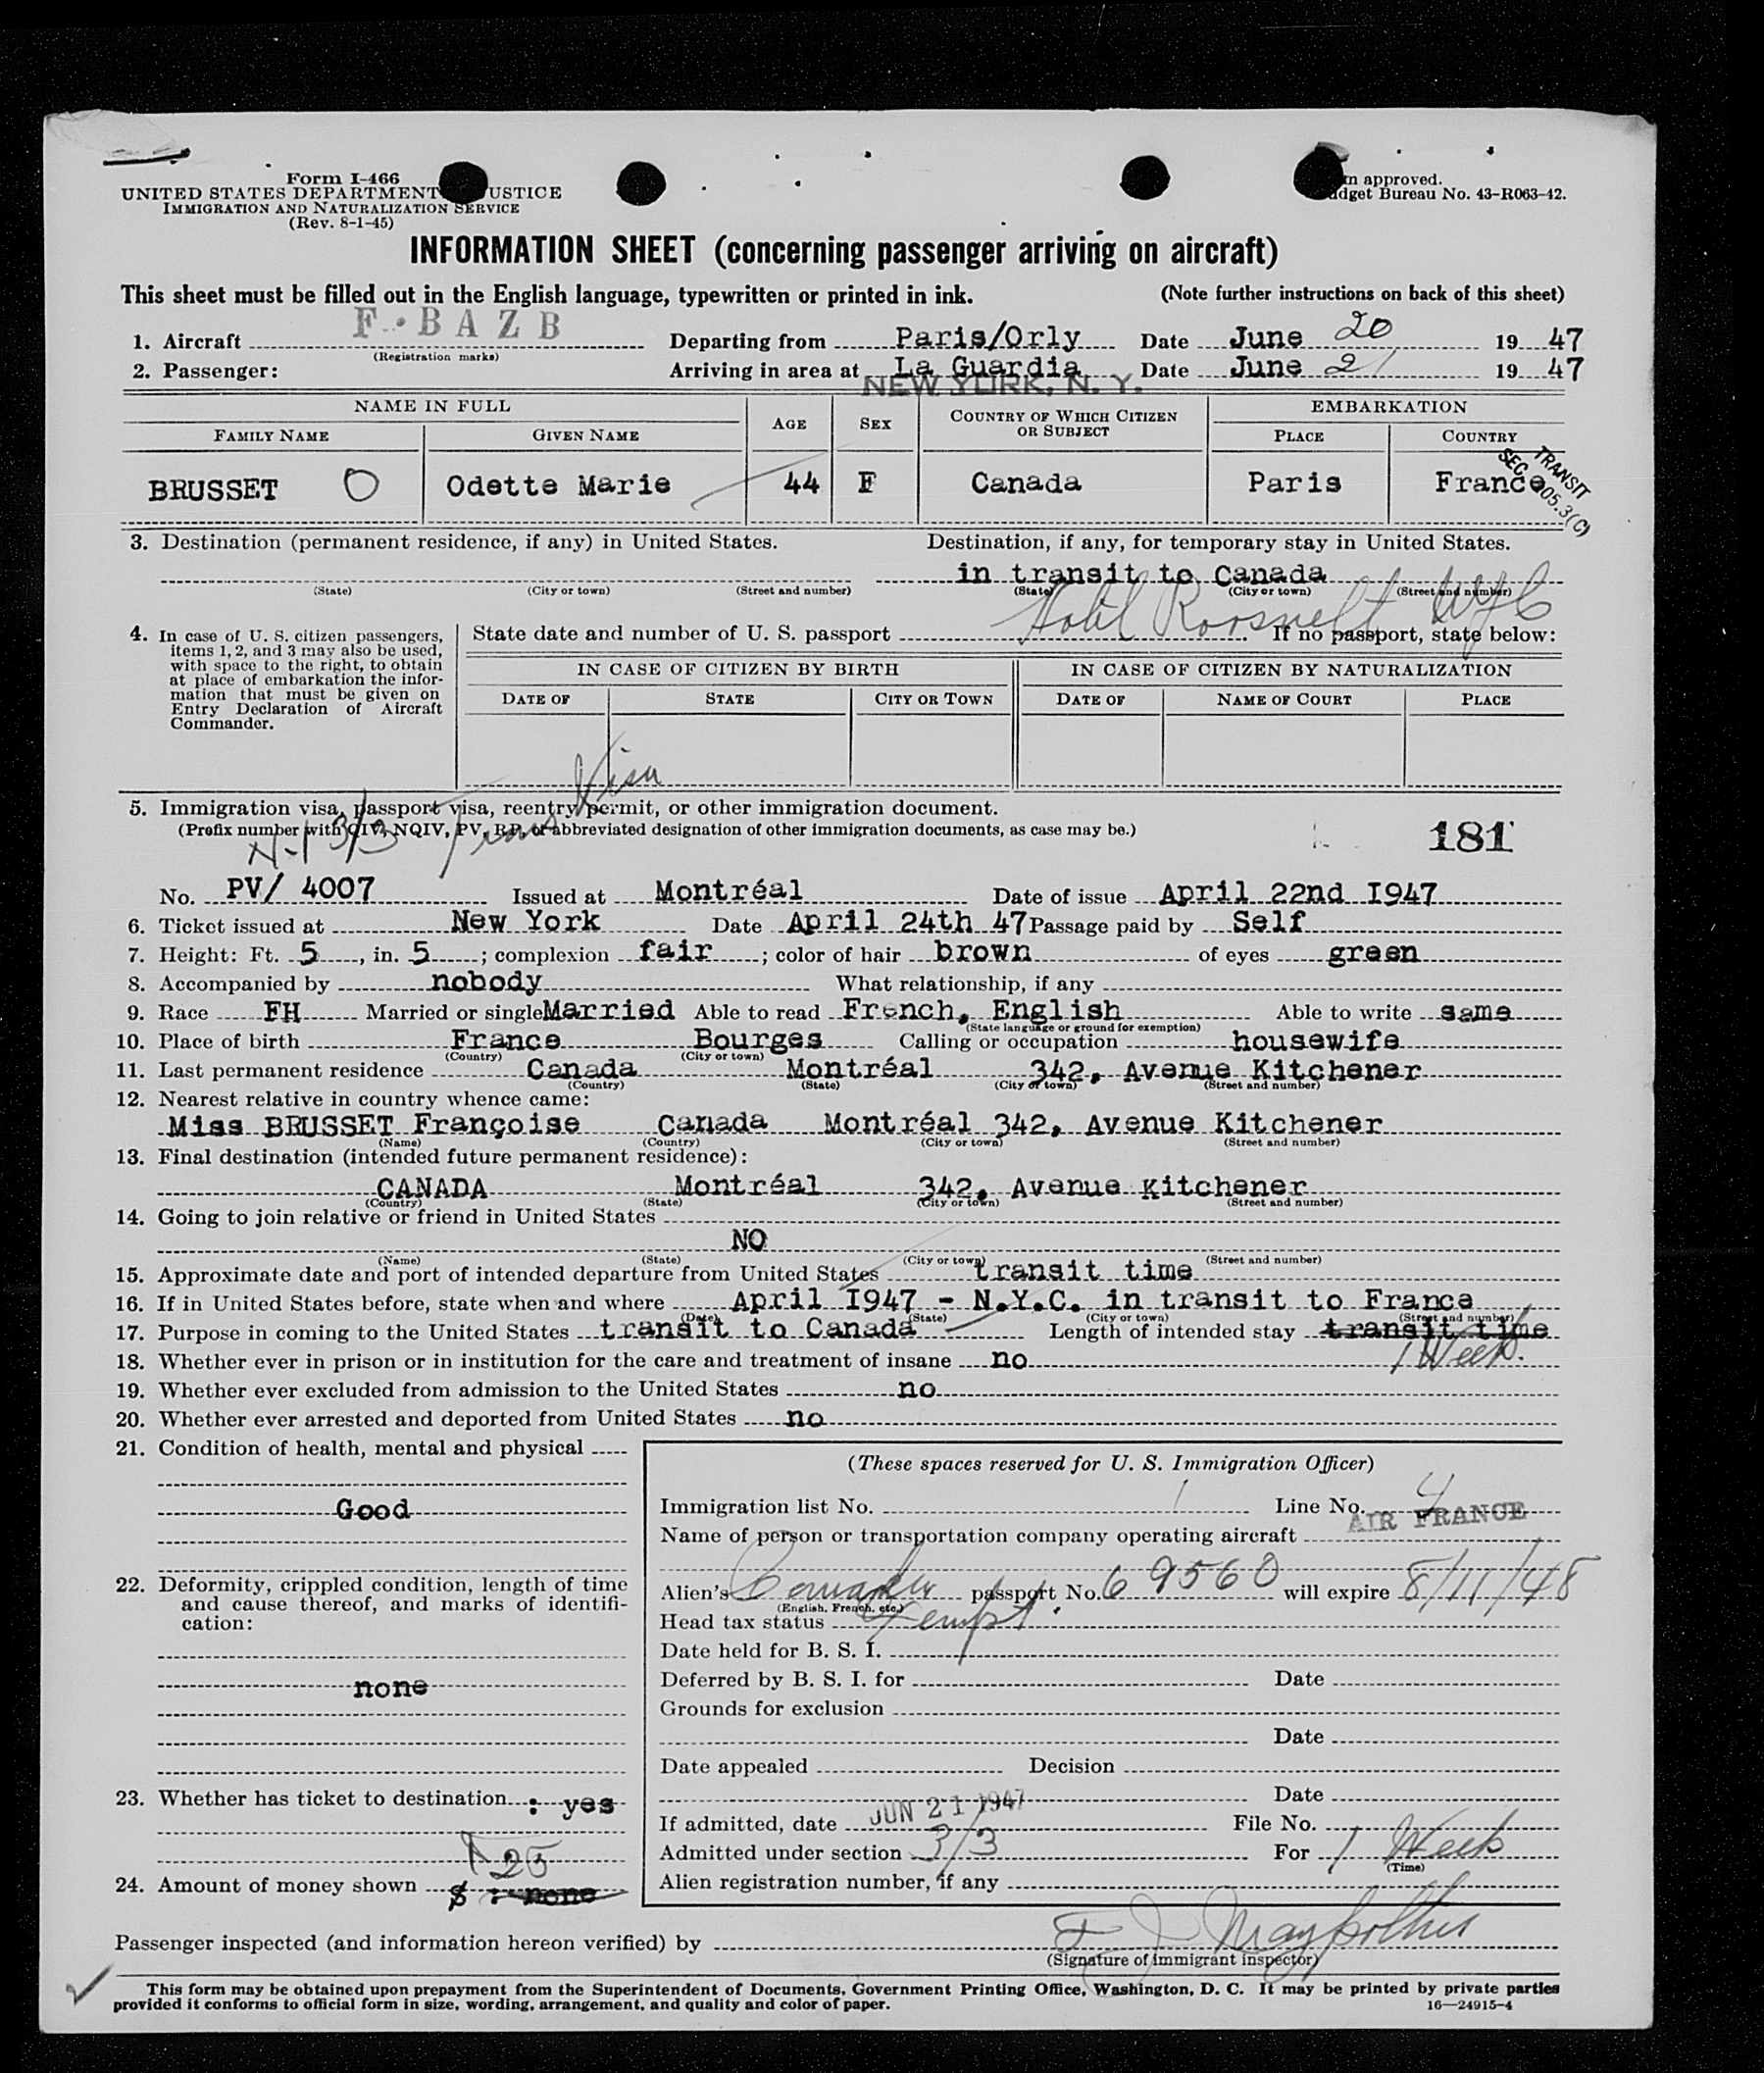 Form I-466
UNITED STATES DEPARTMENT USTICE
IMMIGRATION AND NATURALIZATION SERVICE
(Rev. 8-1-45)
m approved.
dget Bureau No. 43-R063-42.
INFORMATION SHEET (concerning passenger arriving on aircraft)
This sheet must be filled out in the English language, typewritten or printed in ink. (Note further instructions on back of this sheet)
1. Aircraft F-BAZB Departing from Paris/Orly Date June 20 1947
(Registration marks)
2. Passenger: Arriving in area at La Guardia Date June 21 1947
NEW YORK, N. Y.
NAME IN FULL AGE SEX COUNTRY OF WHICH CITIZEN OR SUBJECT EMBARKATION
FAMILY NAME GIVEN NAME PLACE COUNTRY
BRUSSET O Odette Marie 44 F Canada Paris France
TRANSIT
SEC 105.3(C)
3. Destination (permanent residence, if any) in United States. Destination, if any, for temporary stay in United States.
in transit to Canada
(State) (City or town) (Street and number) (State) (City or town) (Street and number)
Hotel Roosvelt NYC
4. In case of U. S. citizen passengers, items 1, 2, and 3 may also be used, with space to the right, to obtain at place of embarkation the information that must be given on Entry Declaration of Aircraft Commander.
State date and number of U. S. passport If no passport, state below:
IN CASE OF CITIZEN BY BIRTH IN CASE OF CITIZEN BY NATURALIZATION
DATE OF STATE CITY OR TOWN DATE OF NAME OF COURT PLACE
5. Immigration visa, passport visa, reentry permit, or other immigration document.
(Prefix number with QIV, NQIV, PV, RP, or abbreviated designation of other immigration documents, as case may be.)
3/3 Trans Visa
181
No. PV/ 4007 Issued at Montréal Date of issue April 22nd I947
6. Ticket issued at New York Date April 24th 47 Passage paid by Self
7. Height: Ft. 5, in. 5; complexion fair; color of hair brown of eyes green
8. Accompanied by nobody What relationship, if any
9. Race FH Married or single Married Able to read French, English Able to write same
(State language or ground for exemption)
10. Place of birth France Bourges Calling or occupation housewife
(Country) (City or town)
11. Last permanent residence Canada Montréal 342, Avenue Kitchener
(Country) (State) (City or town) (Street and number)
12. Nearest relative in country whence came:
Miss BRUSSET Françoise Canada Montréal 342, Avenue Kitchener
(Name) (Country) (City or town) (Street and number)
13. Final destination (intended future permanent residence):
CANADA Montréal 342, Avenue Kitchener
(Country) (State) (City or town) (Street and number)
14. Going to join relative or friend in United States
NO
(Name) (State) (City or town) (Street and number)
15. Approximate date and port of intended departure from United States transit time
16. If in United States before, state when and where April I947 - N.Y.C. in transit to France
(Date) (State) (City or town) (Street and number)
17. Purpose in coming to the United States transit to Canada Length of intended stay transit time
1 Week.
18. Whether ever in prison or in institution for the care and treatment of insane no
19. Whether ever excluded from admission to the United States no
20. Whether ever arrested and deported from United States no
21. Condition of health, mental and physical
Good
22. Deformity, crippled condition, length of time and cause thereof, and marks of identification:
none
23. Whether has ticket to destination : yes
25
24. Amount of money shown $ : none
(These spaces reserved for U. S. Immigration Officer)
Immigration list No. 1 Line No. 4
Name of person or transportation company operating aircraft AIR FRANCE
Alien's passport No. 69560 will expire 8/11/48
(English, French, etc.)
Head tax status Exempt.
Date held for B. S. I.
Deferred by B. S. I. for Date
Grounds for exclusion
Date
Date appealed Decision
Date
If admitted, date JUN 21 1947 File No.
Admitted under section 3/3 For 1 Week
(Time)
Alien registration number, if any
Passenger inspected (and information hereon verified) by
(Signature of immigrant inspector)
This form may be obtained upon prepayment from the Superintendent of Documents, Government Printing Office, Washington, D. C. It may be printed by private parties
provided it conforms to official form in size, wording, arrangement, and quality and color of paper. 16—24915-4